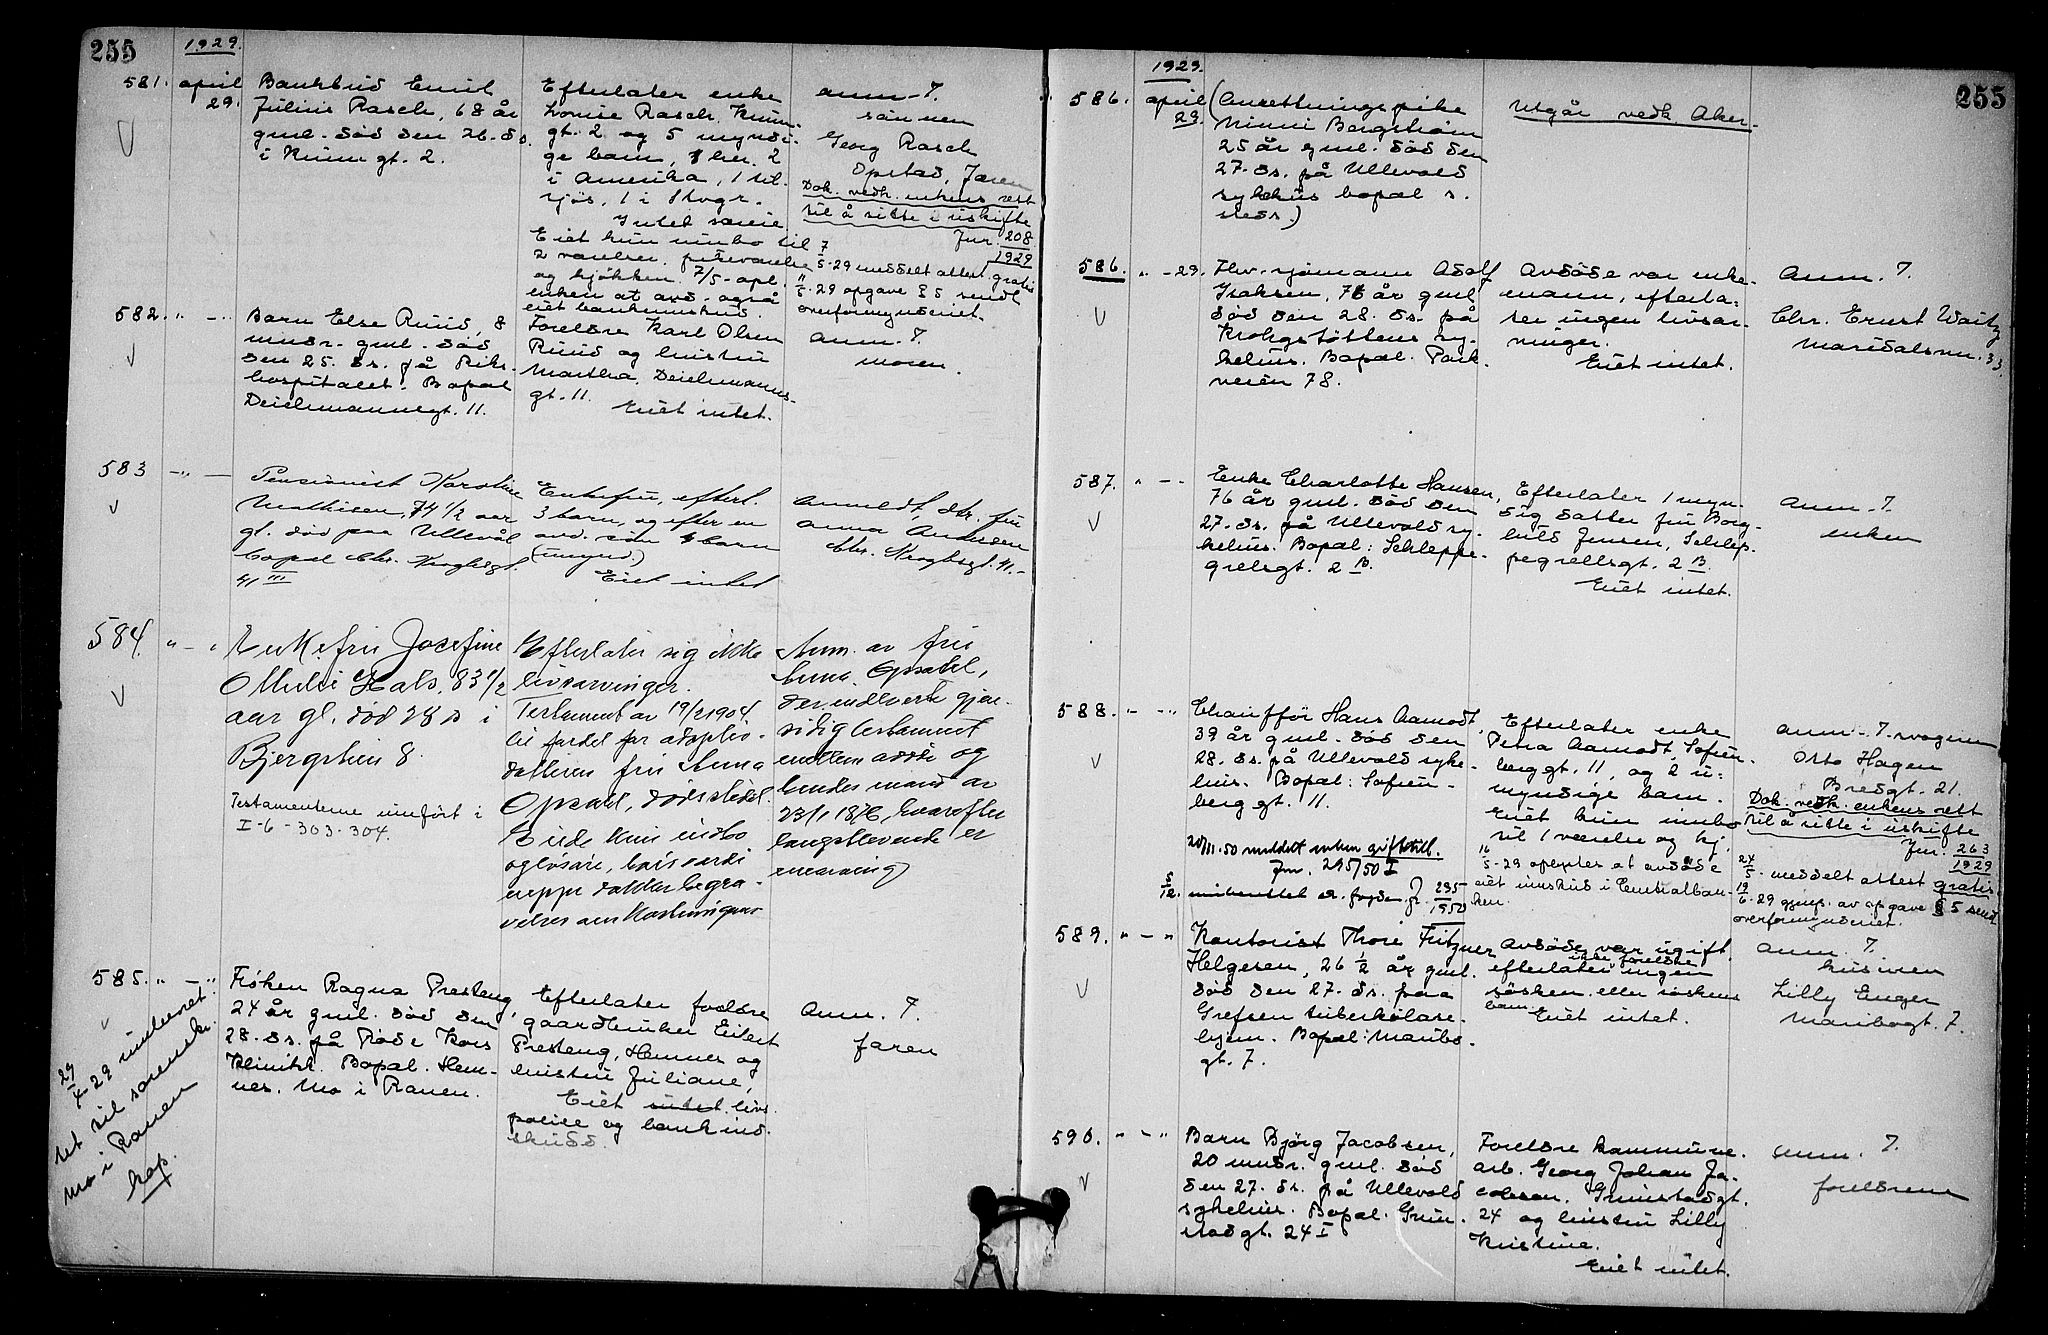 255
1929.
581. april 29.
Bankbud Emil
Julius Rasch, 68 år
gml. død den 26. ds.
i Krum gt. 2.
Efterlater enke
Louise Rasch, Krum-
gt. 2 og 5 myndi-
ge barn, 1 her, 2
i Amerika, 1 til-
sjøs, 1 i Stvgr.
Intet særeie
Eiet kun innbo til
2 værelser, pikeværelse
og kjøkken. 7/5- opl.
enken at avd. også
eiet bankinnskud.
anm. T.
sønnen
Georg Rasch
Opstad, Jæren
Dok. vedk. enkens rett
til å sitte i uskifte
Jnr. 208
1929
7/5-29 meddelt attest gratis
"/5-29 opgave § 5 sendt
overformynderiet.
582. " - "
Barn Else Ruud, 8
mndr. gml. død
den 25. ds. på Riks-
hospitalet. Bopæl
Deichmannsgt. 11.
Foreldre Karl Olsen
Ruud og hustru
Martha, Deichmanns-
gt. 11.
Eiet intet.
anm. T.
moren.
583 - " -
Pensionist Karoline
Mathisen, 74 1/2 aar
gl. død paa Ullevål
bopæl Chr. Kroghsgt.
41 III
Enkefru, efterl.
3 barn, og efter en
avd. søn 4 barn
(umynd.)
Eiet intet
Anmeldt, dtr. fru
Anna Andersen
Chr. Kroghsgt. 41.-
584. " - "
Enkefru Josefine
Othelie Hals, 83 1/2
aar gl. død 28 ds i
Bjergstien 8.
Testamenterne innført i
I-6-303-304.
Efterlater sig ikke
livsarvinger.
Testament av 19/2 1904
til fordel for adoptiv-
datteren fru Anna
Opsahl, dødsstedet.
Eiede kun indbo
og løsøre, hvis værdi
neppe dækker begra-
velses omkostninger
Anm. av fru
Anna Opsahl,
der indleverte gjen-
sidig testament
mellem avdøde og
hendes mand av
23/1 1876, hvorefter
længstlevende er
enearving
585. " - "
Frøken Ragna Presteng,
24 år gml. død den
28. ds. på Røde Kors
Klinikk. Bopæl. Hem-
nes. Mo i Ranen.
Efterlater foreldre
gaardbruker Eilert
Presteng, Hemnes og
hustru Juliane,
Eiet intet livs.
police og bankinn.
skudd
Anm. T.
faren
29/4-29 underret
tet til sorenskr.
Mo i Ranen
kop.
255
1929.
586. april 29.
(Anretningspike
Minni Bergstrøm
25 år gml. død den
27. ds. på Ullevold
sykehus bopæl s.
steds.)
Utgår vedk. Aker.
586. " - 29.
Fhv. sjømann Adolf
Isaksen, 76 år gml
død den 28. ds. på
Krohgstøttens sy-
kehus. Bopæl. Park-
veien 78.
Avdøde var enke-
mann, efterla-
ter ingen livsar-
vinger.
Eiet intet.
Anm. T.
Chr. Ernst Waitz
Maridalsvn. 33.
587. " - -
Enke Charlotte Hansen,
76 år gml. død den
27. ds. på Ullevold sy-
kehus. Bopæl: Schleppe-
grelsgt. 2 B.
Efterlater 1 myn-
dig datter fru Borg-
hild Jensen, Schlep-
pegrellsgt. 2 B.
Eiet intet.
Anm. T.
enken
588. " - "
Chauffør Hans Aamodt,
39 år gml. død den
28. ds. på Ullevold syke-
hus. Bopæl: Sofien-
berggt. 11.
20/11.50 meddelt enken giftetill.
Jnr. 295/50 I
5/12. innberettet s. fogden, J. 295
1950
Efterlater enke
Petra Aamodt, Sofien-
berggt. 11, og 2 u-
myndige barn.
Eiet kun innbo
til 1 værelse og kj.
16/5-29 oplyses at avdøde
eiet innskud i Centralban-
ken.
anm. T. svogeren
Otto Hagen
Bredgt. 21.
Dok. vedk. enkens rett
til å sitte i uskifte
Jnr. 263
1929
24/5. meddelt attest gratis.
19/6-29 gjenp. av opgave § 5 sendt
overformynderiet.
589. " - "
Kontorist Thore Fritzner
Helgesen, 26 1/2 år gml.
død den 27. ds. paa
Grefsen tuberkulose-
hjem. Bopæl: Maribo-
gt. 7.
Avdøde var ugift.
ikke foreldre
efterlater ingen
søsken. eller søskens
barn Eiet intet.
anm. T.
kusinen
Lilly Enger
Maribogt. 7.
590. " - "
Barn Bjørg Jacobsen,
20 mndr. gml. død
den 27. ds. på Ullevold
sykehus. Bopæl. Grim-
stadgt. 24 I
Foreldre kommune-
arb. Georg Johan Ja-
cobsen, Grimstadgt.
24 og hustru Lilly
Kristine.
Eiet intet.
anm. T.
foreldrene